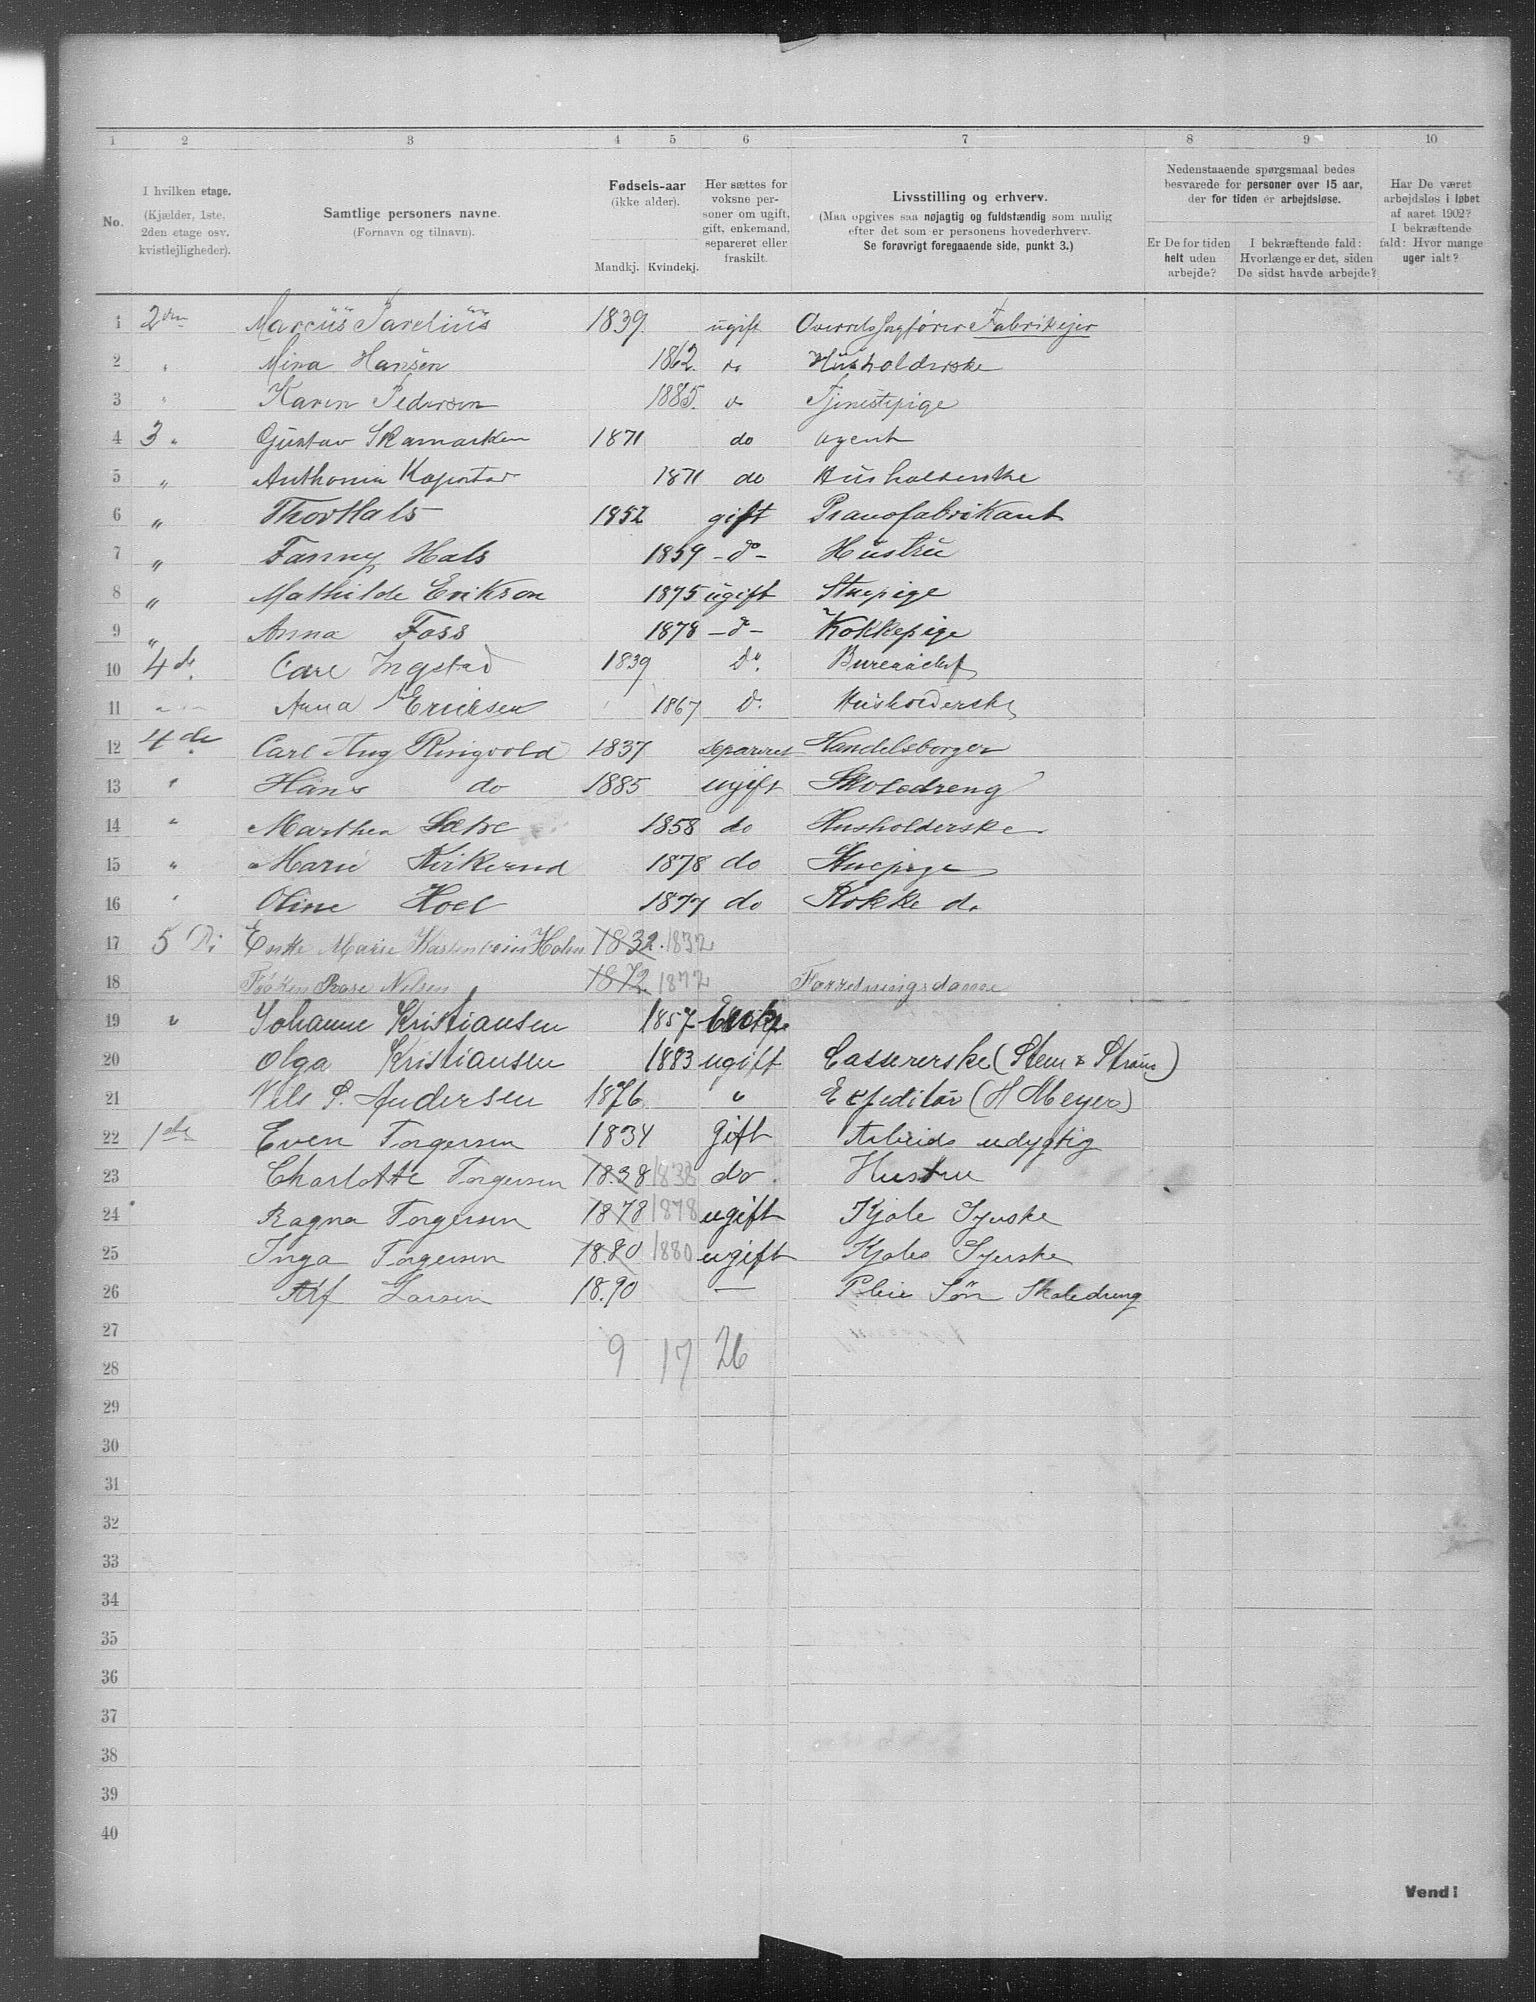 1 2 3 4 5 6 7 8 9 10
No.
I hvilken etage.
(Kjælder, 1ste,
2den etage osv.
kvistlejligheder).
Samtlige personers navne.
(Fornavn og tilnavn).
Fødsels-aar
(ikke alder).
Mandkj. Kvindekj.
Her sættes for
voksne per-
soner om ugift,
gift, enkemand,
separeret eller
fraskilt.
Livsstilling og erhverv.
(Maa opgives saa nøjagtig og fuldstændig som mulig
efter det som er personens hovederhverv.
Se forøvrigt foregaaende side, punkt 3.)
Nedenstaaende spørgsmaal bedes
besvarede for personer over 15 aar,
der for tiden er arbejdsløse.
Er De for tiden
helt uden
arbejde?
I bekræftende fald:
Hvorlænge er det, siden
De sidst havde arbejde?
Har De været
arbejdsløs i løbet
af aaret 1902?
I bekræftende
fald: Hvor mange
uger ialt?
1 2den Marcus Parelius 1839 ugift Overretssagfører Fabrikejer
2 " Mina Hansen 1862 do Husholderske
3 " Karen Pedersen 1885 do Tjenestepige
4 3 " Gustav Skamarken 1871 do agent
5 " Anthonia 1871 do Husholderske
6 " Thor Hals 1852 gift Pianofabrikant
7 " Fanny Hals 1859 - do - Hustru
8 " Mathilde Erikson 1875 ugift Stuepige
9 " Anna Foss 1878 - do - Kokkepige
10 4de Carl Ingstad 1839 Do. Bureauchef
11 Anna Ericksen 1867 Do. Husholderske
12 4de Carl Aug Ringvold 1837 separeret Handelsborger
13 " Hans do 1885 ugift Skoledreng
14 " Marthea Sætre 1858 do Husholderske
15 " Marie Kirkerud 1878 do Stuepige
16 " Oline Hoel 1877 do Kokke do
17 5 Enke Marie Holm 1832 1832
18 Frøken Rose Nilsen 1872 1872 Forretningsdame
19 " Johanne Kristiansen 1857 Enke
20 Olga Kristiansen 1883 ugift Cassererske (Steen & Strøm)
21 Nils P. Andersen 1876 " Expeditør (H Meyer)
22 1ste Even Torgersen 1834 Gift Arbeids udygtig
23 Charlotte Torgersen 1838 1838 do Hustru
24 Ragna Torgersen 1878 1878 ugift Kjole Syerske
25 Inga Torgersen 1880 1880 ugift Kjole Syerske
26 Alf Larsen 1890 — Pleie Søn Skoledreng
27
28 9 17 26
29
30
31
32
33
34
35
36
37
38
39
40
Vend!